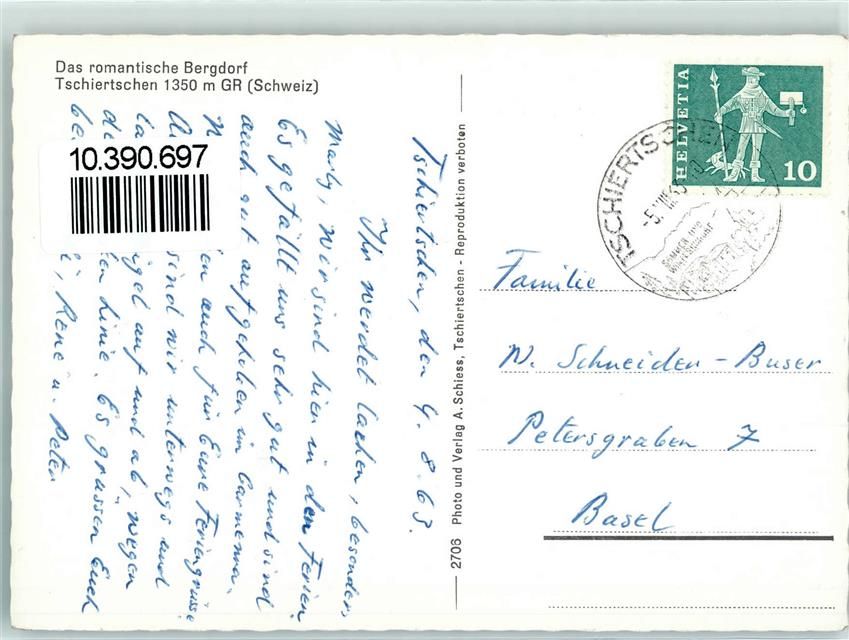 Das romantische Bergdorf
Tschiertschen 1350 m GR (Schweiz)
10.390.697
Tschiertschen, den 4. 8. 63.
Ihr werdet lachen, besonders
Marly, wir sind hier in den Ferien.
Es gefällt uns sehr gut und sind
auch gut aufgehoben im Carmenna.
auch für Eure Feriengrüsse
sind wir unterwegs und
auf und ab, wegen
Linie. Es grüssen Euch
René u. Peter
2706 Photo und Verlag A. Schiess, Tschiertschen - Reproduktion verboten
HELVETIA
10
TSCHIERTSCHEN
SOMMER UND
Familie
W. Schneider-Buser
Petersgraben 7
Basel